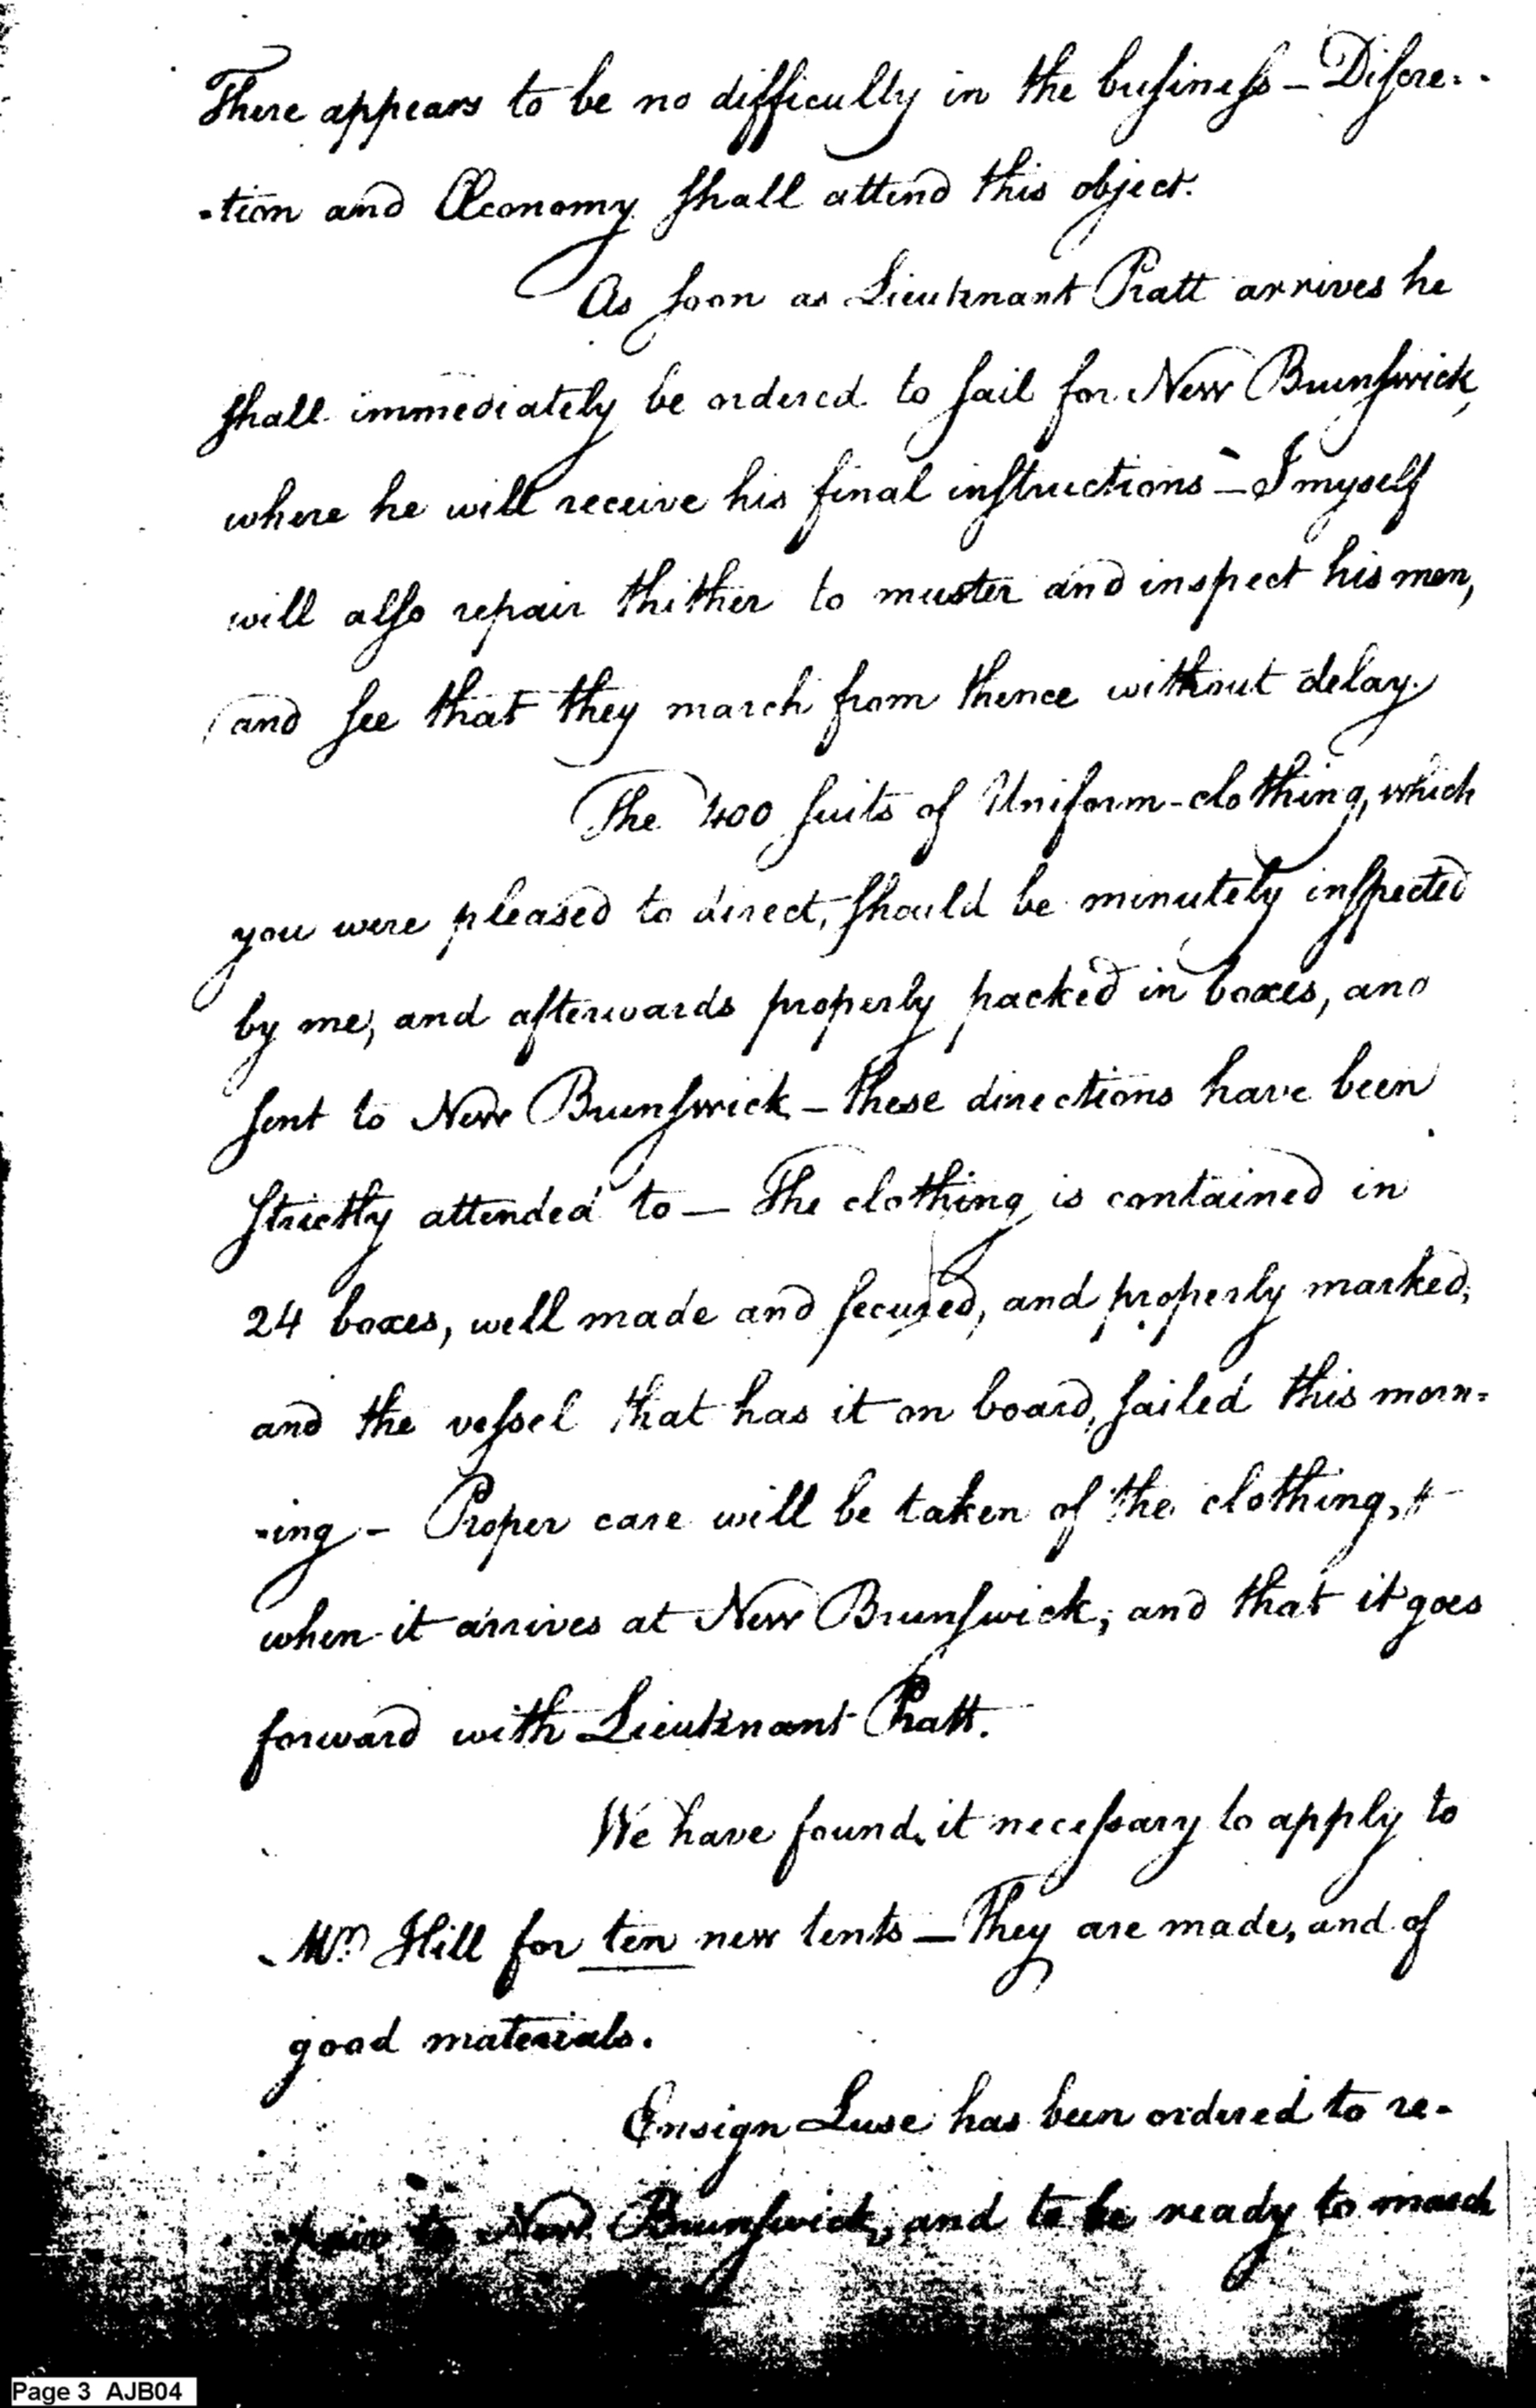 There appears to be no difficulty in the buſineſs – Diſcre-
-tion and Œconomy ſhall attend this object.
As ſoon as Lieutenant Pratt arrives he
ſhall immediately be ordered to ſail for New Brunſwick,
where he will receive his final inſtructions – I myself
will alſo repair thither to muster and inspect his men,
and ſee that they march from thence without delay.
The 400 ſuits of Uniform-clothing, which
you were pleased to direct, ſhould be minutely inſpected
by me, and afterwards properly packed in boxes, and
ſent to New Brunſwick – these directions have been
ſtrictly attended to – The clothing is contained in
24 boxes, well made and ſecured, and properly marked,
and the veſsel that has it on board, ſailed this morn=
-ing – Proper care will be taken of the clothing,
when it arrives at New Brunſwick, and that it goes
forward with Lieutenant Pratt.
We have found it neceſsary to apply to
Mr. Hill for ten new tents – They are made, and of
good materials.
Ensign Luse has been ordered to re-
-pair to New Brunſwick, and to be ready to march
Page 3 AJB04